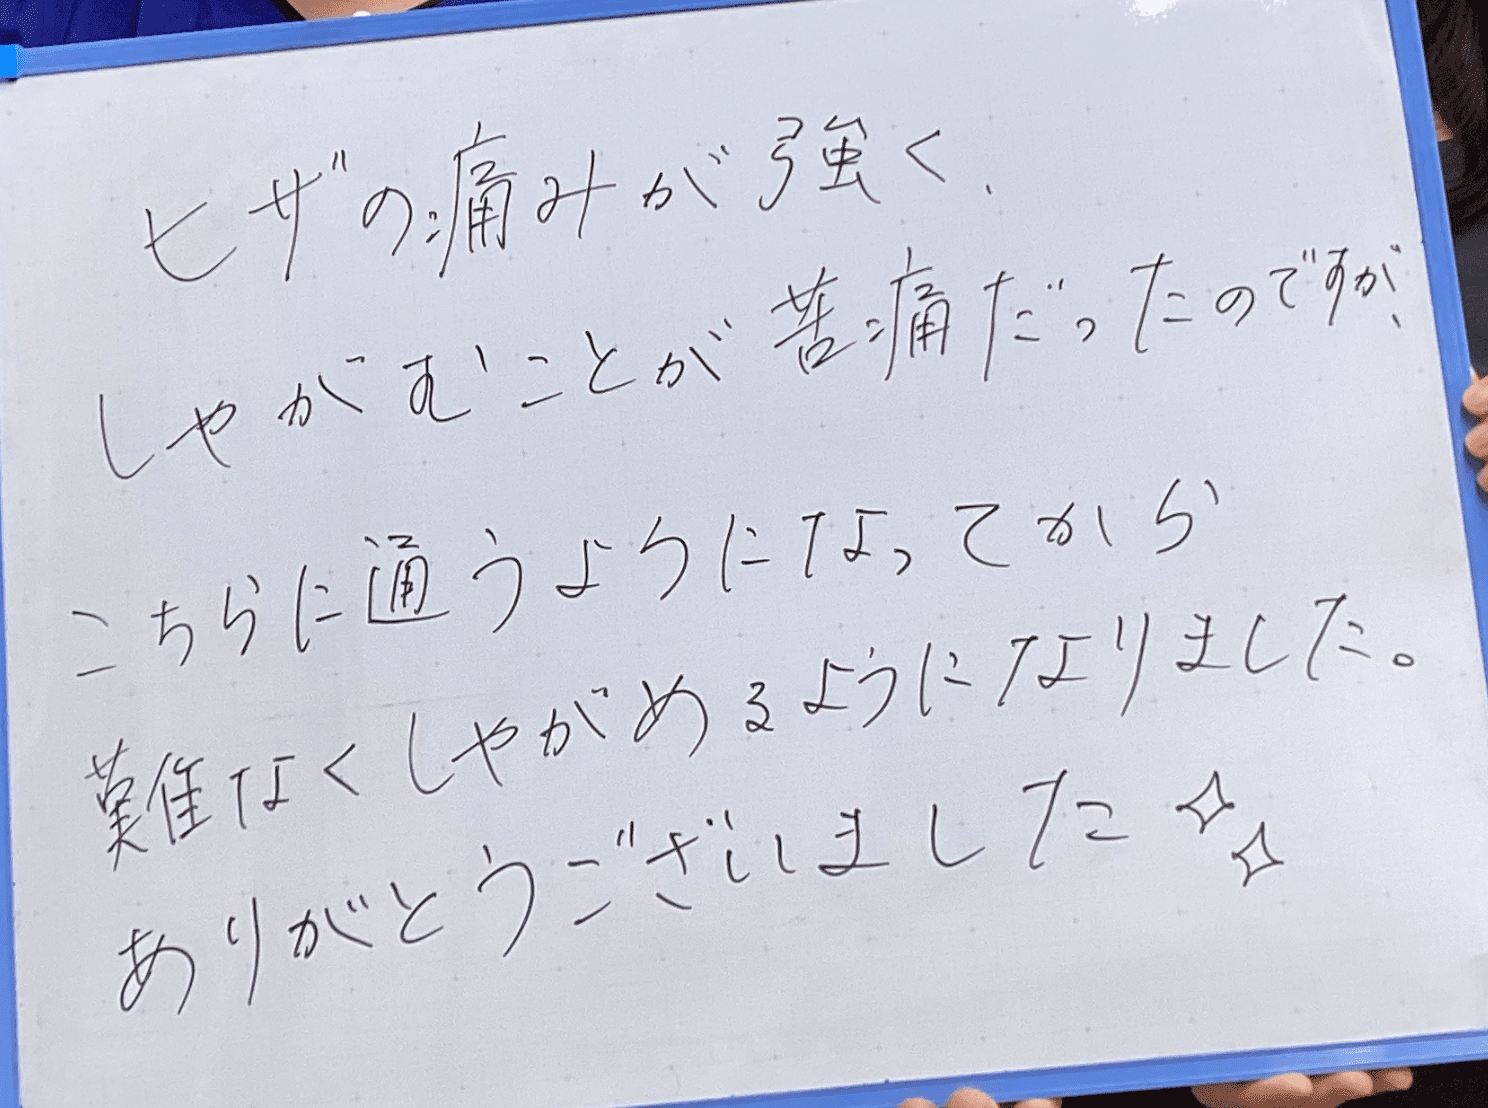 ヒザの痛みが強く、
しゃがむことが苦痛だったのですが、
こちらに通うようになってから
難なくしゃがめるようになりました。
ありがとうございました✧✧